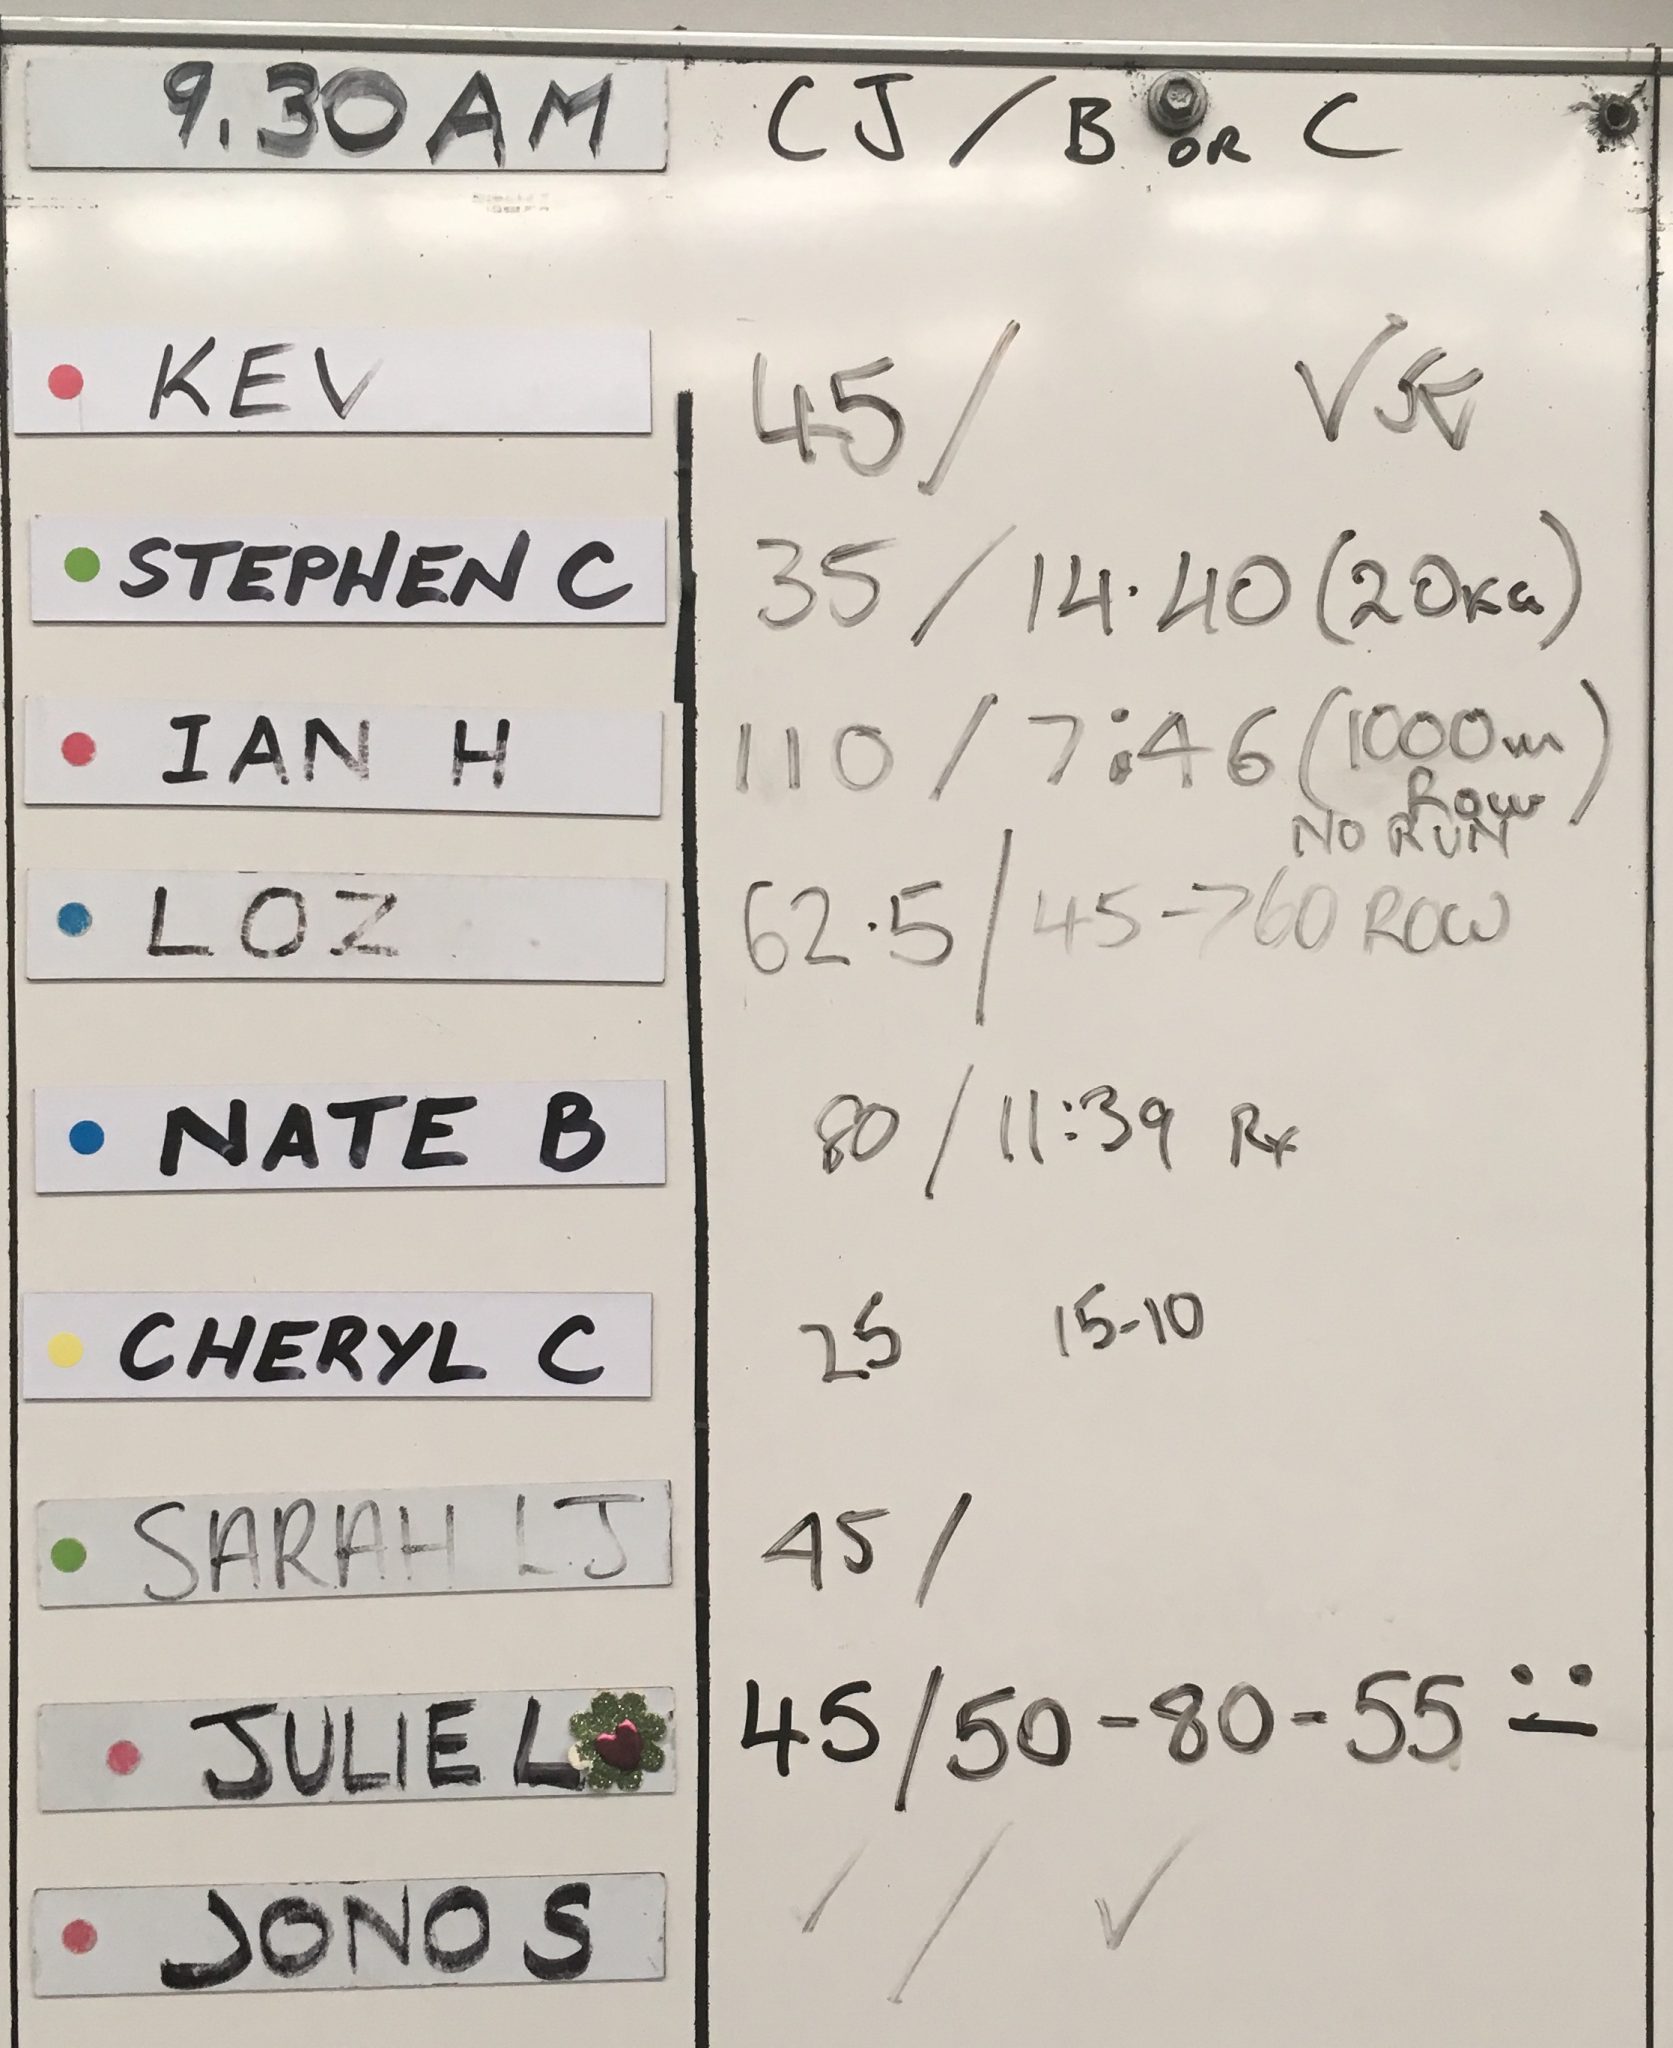 9.30AM CJ / B OR C
KEV 45 / ✓
STEPHEN C 35 / 14.40 (20KG)
IAN H 110 / 7:46 (1000m
ROW)
NO RUN
LOZ 62.5 / 45->60 ROW
NATE B 80 / 11:39 Rx
CHERYL C 25 15-10
SARAH LJ 45 /
JULIE L 45 / 50-80-55
JONO S / / ✓